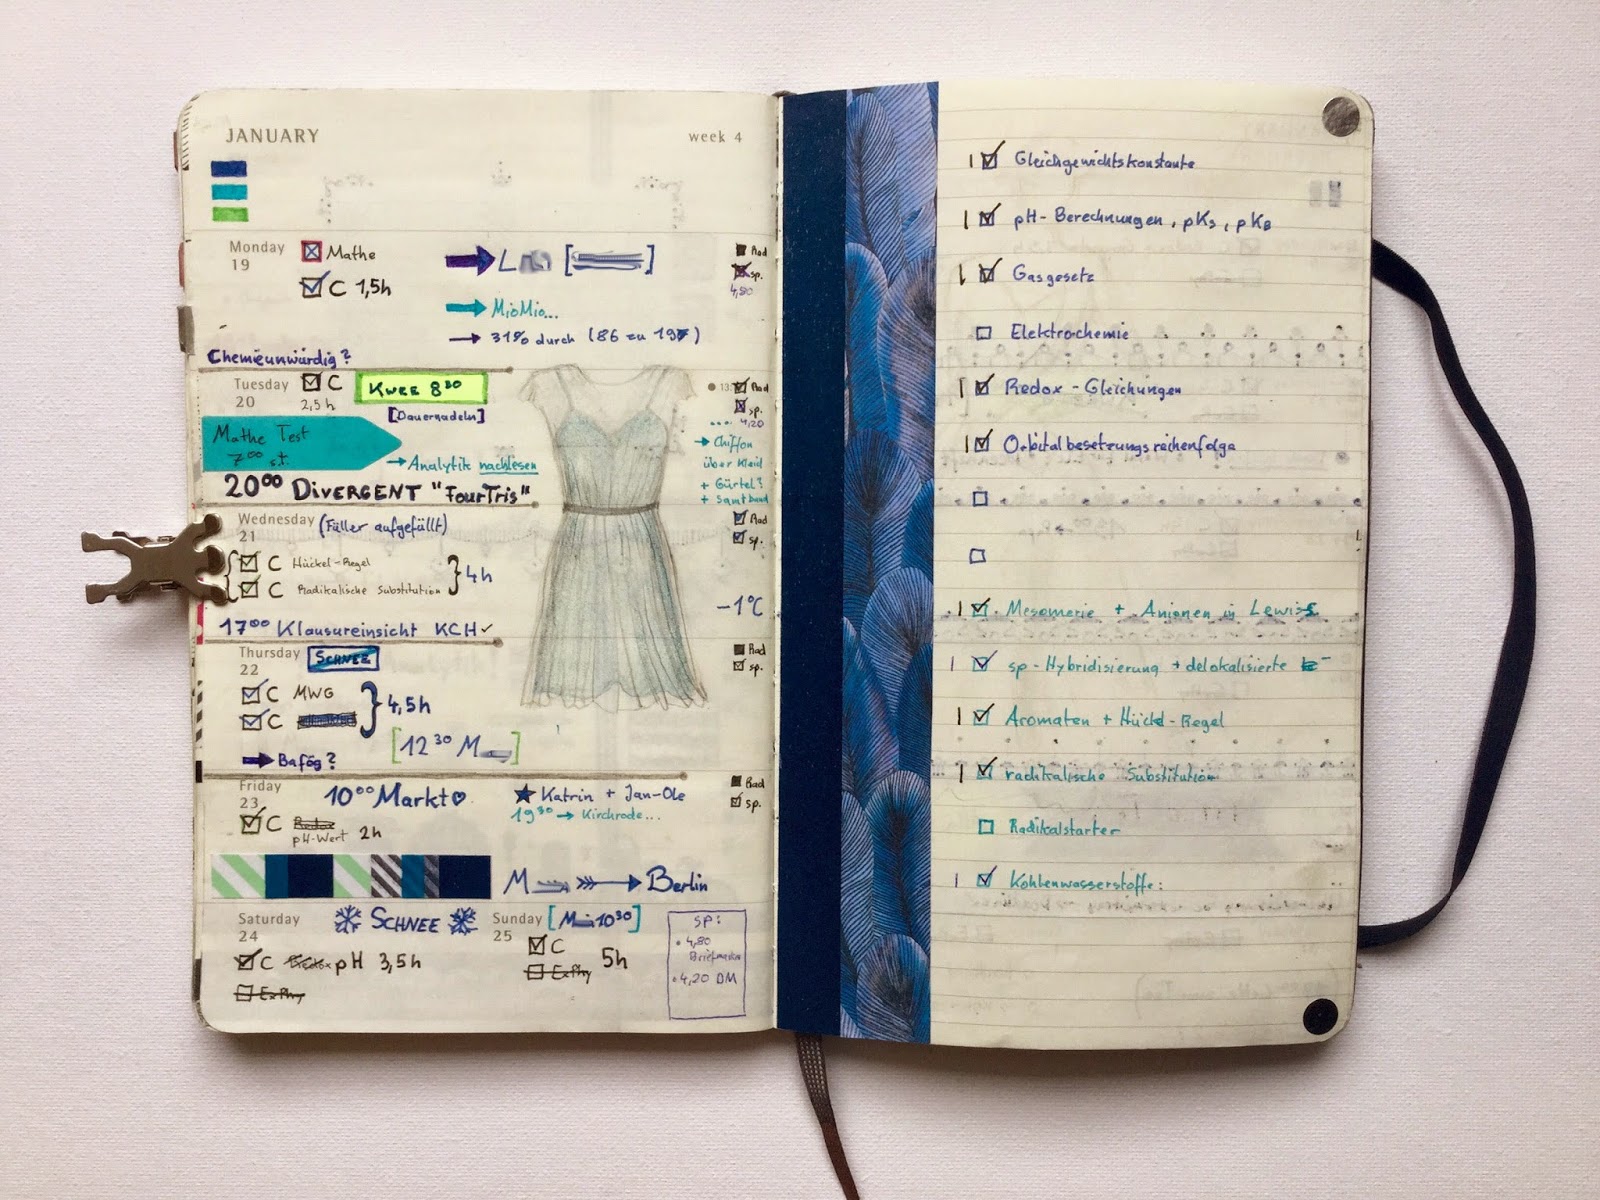 JANUARY
week 4
Monday
19
Mathe
C 1,5h
MioMio...
31% durch (86 zu 197)
sp.
4,80
Chemieunwürdig?
Tuesday
20
C
2,5h
KWRE 8³⁰
[Dauernadeln]
Mathe Test
7⁰⁰ s.t.
Analytik nachlesen
20⁰⁰ DIVERGENT "FourTris"
sp.
4,20
Chiffon
über Kleid
+ Gürtel?
+ Samtband
Wednesday
21
(Füller aufgefüllt)
C Hückel-Regel
C Radikalische Substitution
4h
Rad
sp.
-1°C
17⁰⁰ Klausureinsicht KCH ✓
Thursday
22
SCHNEE
C MWG
C
4,5h
[12³⁰ M ]
Bafög?
Rad
sp.
Friday
23
10⁰⁰ Markt ♡
★ Katrin + Jan-Ole
19³⁰ → Kirchrode...
C Redox
pH-Wert 2h
Rad
sp.
M → Berlin
Saturday
24
SCHNEE
C Redox pH 3,5h
ExPhy
Sunday
25
10³⁰
C
ExPhy
5h
SP:
• 4,80
Briefmarken
• 4,20 DM
Gleichgewichtskonstante
pH-Berechnungen, pKs, pKB
Gasgesetz
Elektrochemie
Redox-Gleichungen
Orbitalbesetzungsreihenfolge
Mesomerie + Anionen in Lewis
sp-Hybridisierung + delokalisierte
Aromaten + Hückel-Regel
radikalische Substitution
Radikalstarter
Kohlenwasserstoffe: